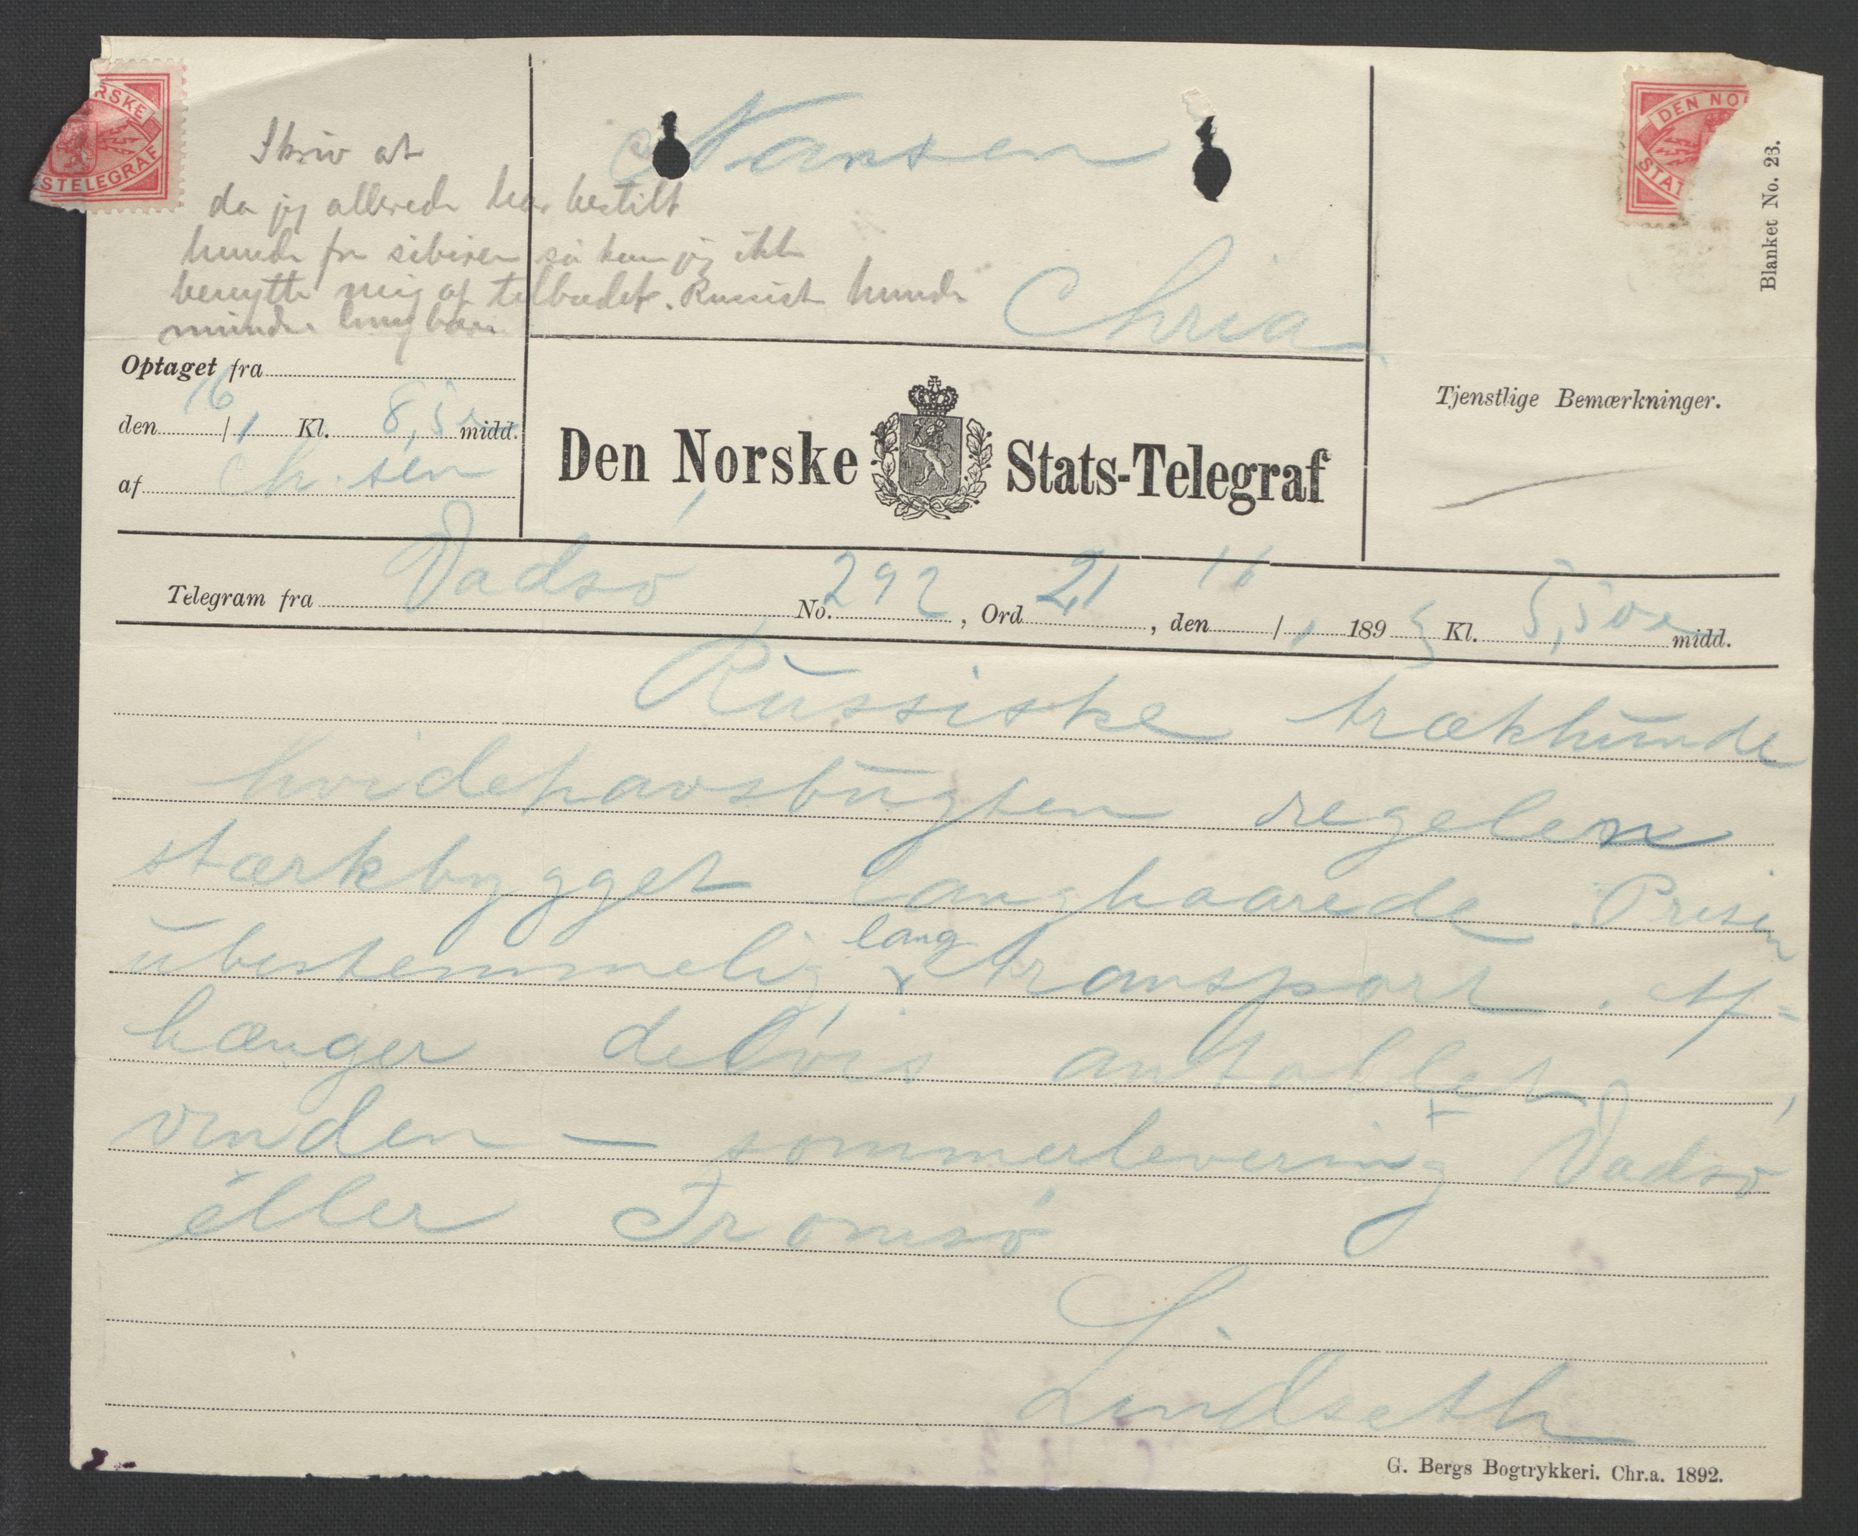 RSKE
STELEGRAF
DEN NO
STAT
Blanket No. 23.
Skriv at
da jeg allerede har bestilt
hunde fra sibirien så kan jeg ikke
benytte mig af tilbudet. Russiske hunde
mindre
Nansen
Chria
Optaget fra
den 16/1 Kl. 8,50 midd.
af Ch. sen
Den Norske Stats-Telegraf
Tjenstlige Bemærkninger.
Telegram fra Vadsö No. 292, Ord 21, den 16/1 1893 Kl. 5,50 e midd.
Russiske trækhunde
hvidehavsbugten regelen
stærkbygget langhaarede. Prisen
ubestemmelig, lang transport. Af=
hænger delvis antallet,
vinden — sommerlevering Vadsö
eller Tromsö
Lindseth
G. Bergs Bogtrykkeri. Chr.a. 1892.